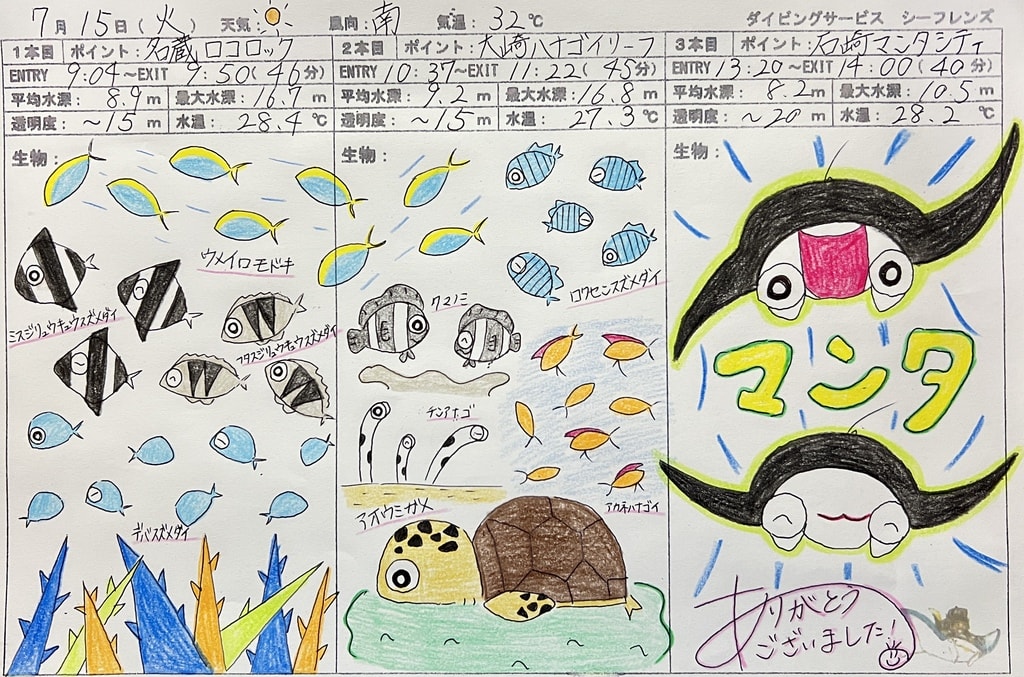 7月15日(火) 天気: 風向:南 気温:32℃ ダイビングサービス シーフレンズ
1本目 ポイント:名蔵ロコロック
ENTRY 9:04~EXIT 9:50(46分)
平均水深: 8.9m 最大水深:16.7m
透明度: ~15m 水温: 28.4℃
生物:
ウメイロモドキ
ミスジリュウキュウスズメダイ
フタスジリュウキュウスズメダイ
デバスズメダイ
2本目 ポイント:大崎ハナゴイリーフ
ENTRY 10:37~EXIT 11:22(45分)
平均水深: 9.2m 最大水深:16.8m
透明度: ~15m 水温: 27.3℃
生物:
ロクセンスズメダイ
クマノミ
チンアナゴ
アオウミガメ
アカネハナゴイ
3本目 ポイント:石崎マンタシティ
ENTRY 13:20~EXIT 14:00(40分)
平均水深: 8.2m 最大水深: 10.5m
透明度: ~20m 水温: 28.2℃
生物:
マンタ
ありがとう
ございました!